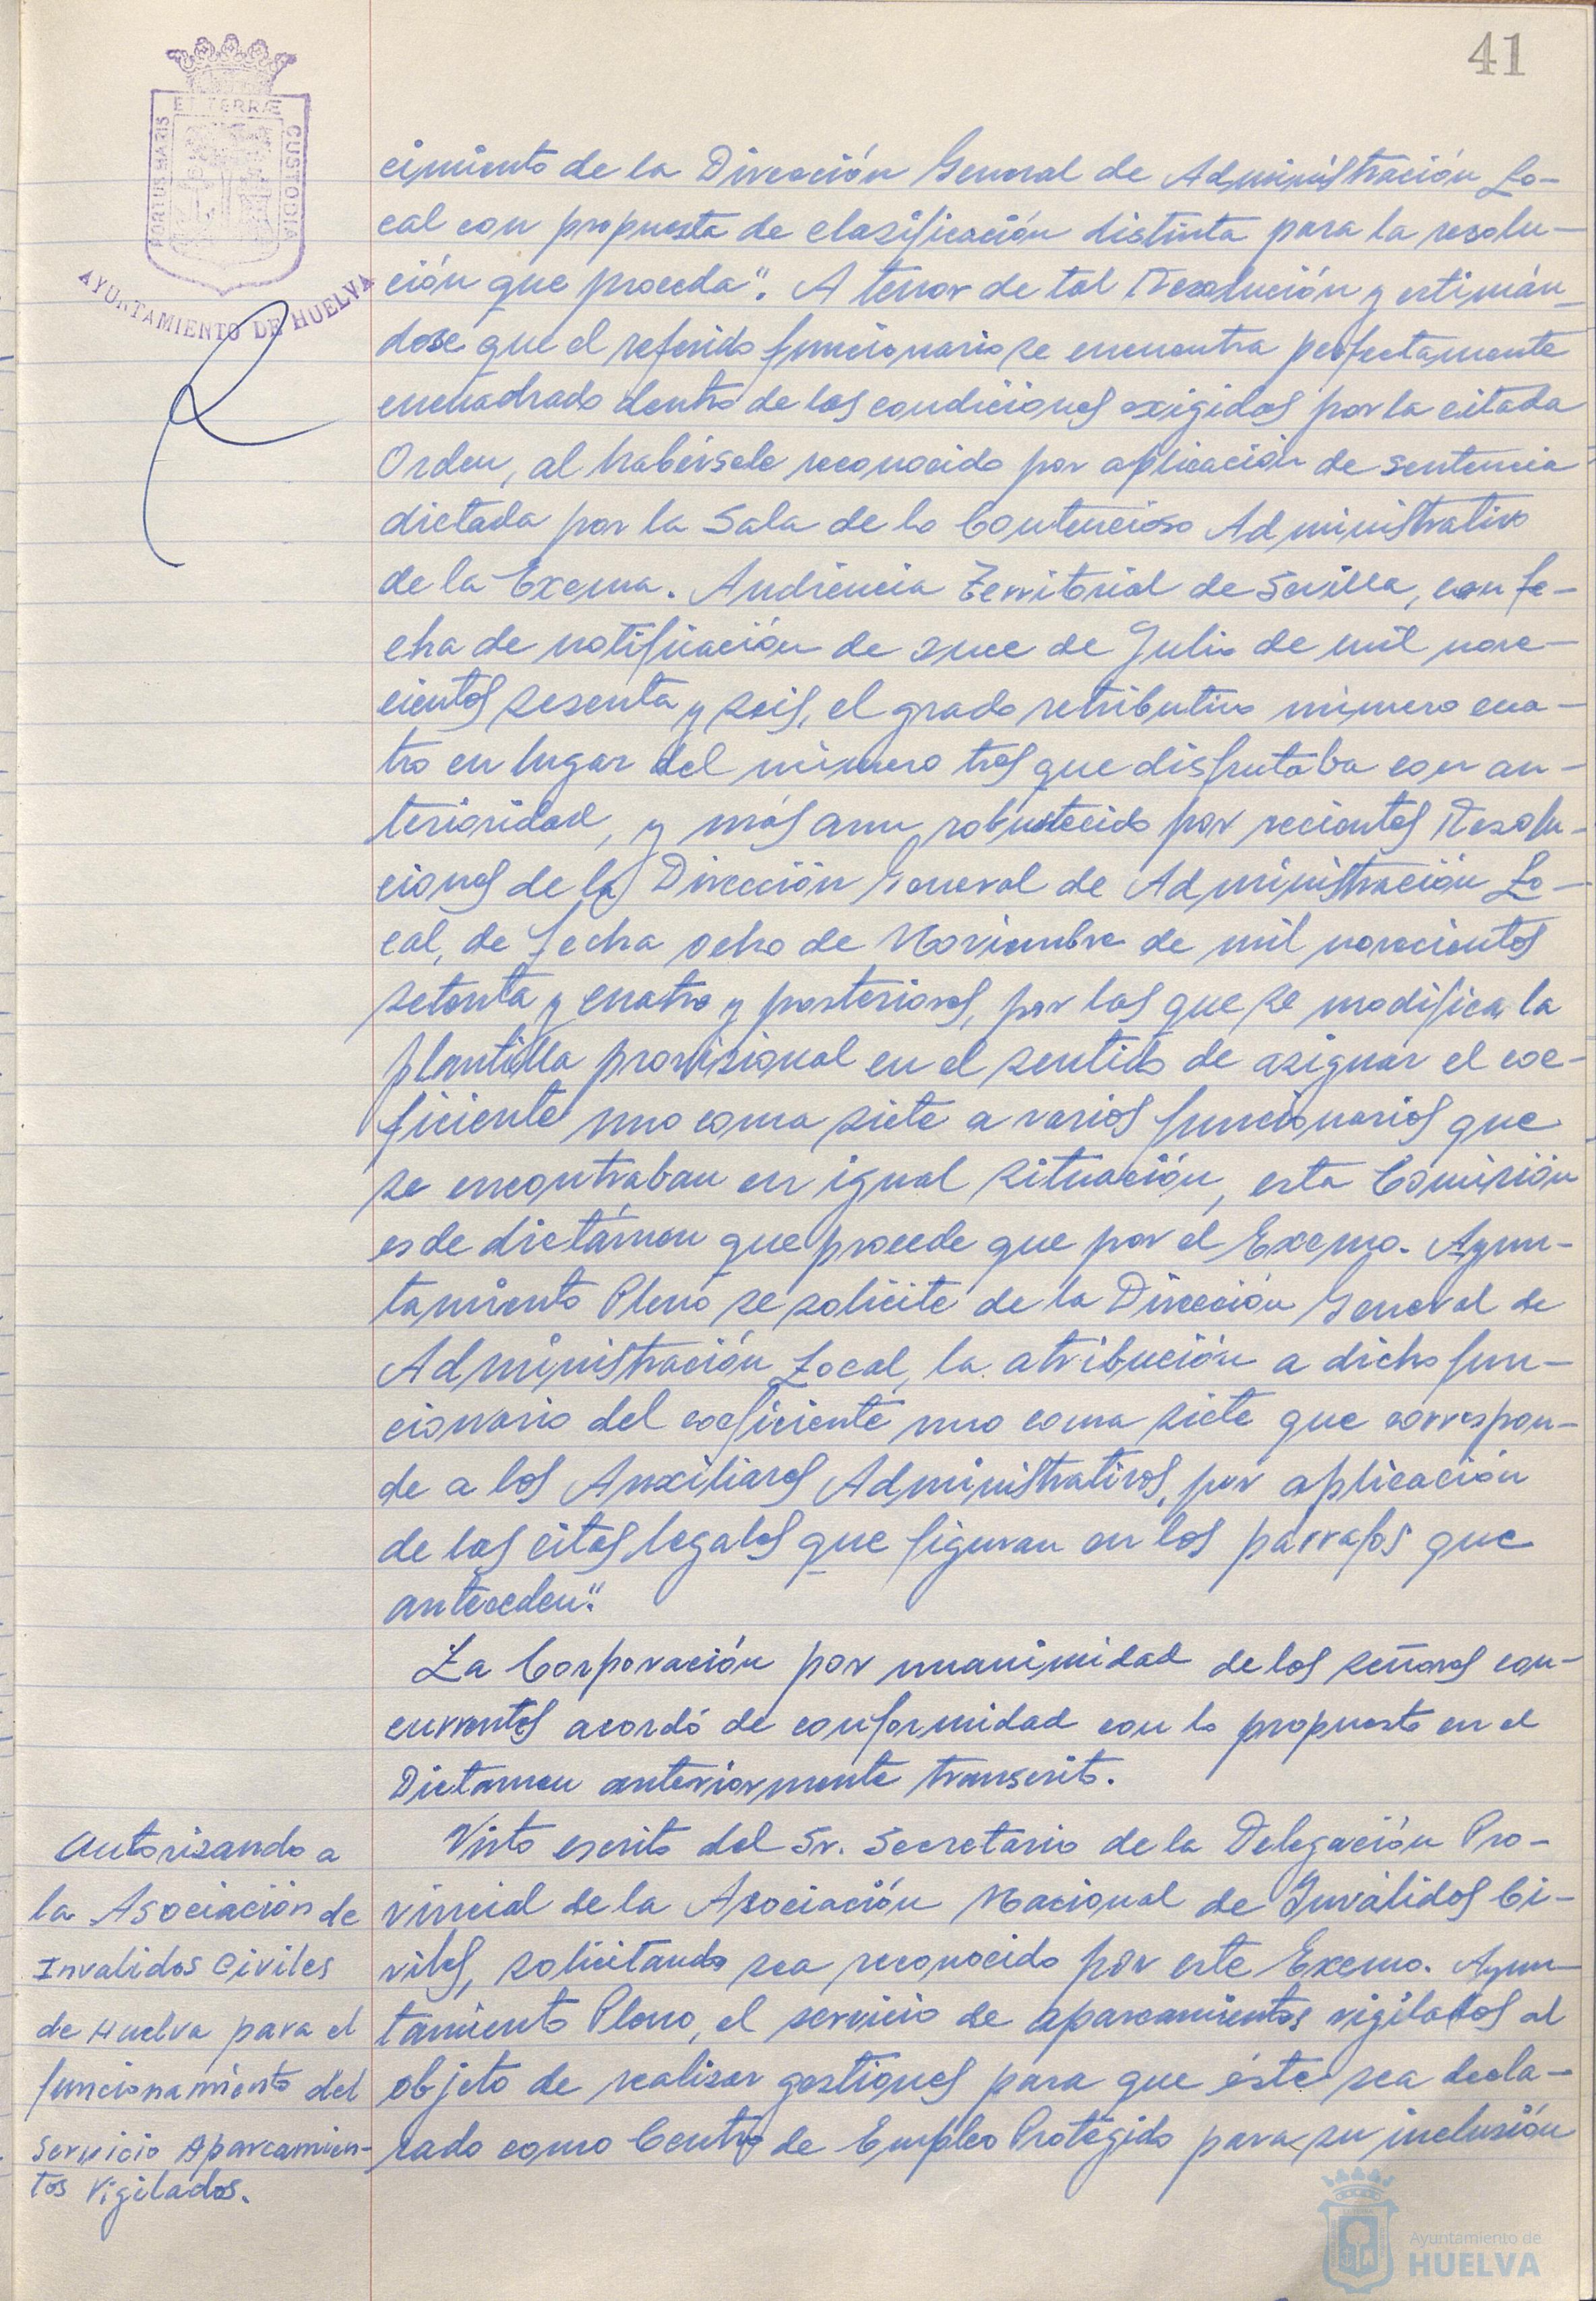 41
PORTUS MARIS ET TERRÆ CUSTODIA
AYUNTAMIENTO DE HUELVA
cimiento de la Dirección General de Administración Lo-
cal con propuesta de clasificación distinta para la resolu-
ción que proceda". A tenor de tal Resolución y estimán-
dose que el referido funcionario se encuentra perfectamente
encuadrado dentro de las condiciones exigidas por la citada
Orden, al habérsele reconocido por aplicación de sentencia
dictada por la Sala de lo Contencioso Administrativo
de la Excma. Audiencia Territorial de Sevilla, con fe-
cha de notificación de once de Julio de mil nove-
cientos sesenta y seis, el grado retributivo número cua-
tro en lugar del número tres que disfrutaba con an-
terioridad, y más aun robustecido por recientes Resolu-
ciones de la Dirección General de Administración Lo-
cal, de fecha ocho de Noviembre de mil novecientos
setenta y cuatro y posteriores, por las que se modifica la
plantilla provisional en el sentido de asignar el coe-
ficiente uno coma siete a varios funcionarios que
se encontraban en igual situación, esta Comisión
es de dictámen que procede que por el Excmo. Ayun-
tamiento Pleno se solicite de la Dirección General de
Administración Local, la atribución a dicho fun-
cionario del coeficiente uno coma siete que correspon-
de a los Auxiliares Administrativos, por aplicación
de las citas legales que figuran en los párrafos que
anteceden".
La Corporación por unanimidad de los señores con-
currentes acordó de conformidad con lo propuesto en el
Dictamen anteriormente transcrito.
Autorizando a
la Asociación de
Invalidos Civiles
de Huelva para el
funcionamiento del
Servicio Aparcamien-
tos Vigilados.
Visto escrito del Sr. Secretario de la Delegación Pro-
vincial de la Asociación Nacional de Inválidos Ci-
viles, solicitando sea reconocido por este Excmo. Ayun-
tamiento Pleno, el servicio de aparcamientos vigilados al
objeto de realizar gestiones para que éste sea decla-
rado como Centro de Empleo Protegido para su inclusión
Ayuntamiento de
HUELVA